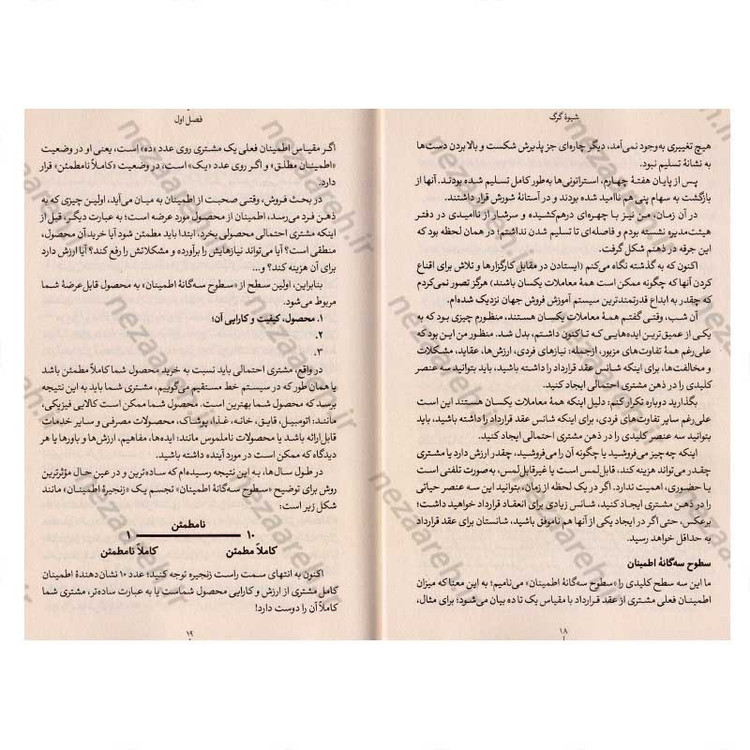 شیوهٔ گرگ
هیچ تغییری به‌وجود نمی‌آمد، دیگر چاره‌ای جز پذیرش شکست و بالا بردن دست‌ها
به نشانهٔ تسلیم نبود.
پس از پایان هفتهٔ چهارم، استراتونی‌ها به‌طور کامل تسلیم شده بودند. آنها از
بازگشت به سهام پنی هم ناامید شده بودند و در آستانهٔ شورش قرار داشتند.
در آن زمان، من نیز با چهره‌ای درهم‌کشیده و سرشار از ناامیدی در دفتر
هیئت‌مدیره نشسته بودم و فاصله‌ای تا تسلیم شدن نداشتم؛ در همان لحظه بود که
این جرقه در ذهنم شکل گرفت.
اکنون که به گذشته نگاه می‌کنم (ایستادن در مقابل کارگزارها و تلاش برای اقناع
کردن آنها که چگونه ممکن است همهٔ معاملات یکسان باشند) هرگز تصور نمی‌کردم
که چقدر به ابداع قدرتمندترین سیستم آموزش فروش جهان نزدیک شده‌ام.
آن شب، وقتی گفتم همهٔ معاملات یکسان هستند، منظورم چیزی بود که به
یکی از عمیق‌ترین ایده‌هایی که تاکنون داشتم، بدل شد. منظور من این بود که
علی‌رغم همهٔ تفاوت‌های مزبور، ازجمله: نیازهای فردی، ارزش‌ها، عقاید، مشکلات
و مخالفت‌ها، برای اینکه شانس عقد قرارداد را داشته باشید، باید بتوانید سه عنصر
کلیدی را در ذهن مشتری احتمالی ایجاد کنید.
بگذارید دوباره تکرار کنم: دلیل اینکه همهٔ معاملات یکسان هستند این است که
علی‌رغم سایر تفاوت‌های فردی، برای اینکه شانس عقد قرارداد را داشته باشید، باید
بتوانید سه عنصر کلیدی را در ذهن مشتری احتمالی ایجاد کنید.
اینکه چه چیز می‌فروشید یا چگونه آن را می‌فروشید، چقدر ارزش دارد یا مشتری
چقدر می‌تواند هزینه کند، قابل‌لمس است یا غیرقابل‌لمس، به‌صورت تلفنی است
یا حضوری، اهمیت ندارد. اگر در یک لحظه از زمان، بتوانید این سه عنصر حیاتی
را در ذهن مشتری ایجاد کنید، شانس زیادی برای انعقاد قرارداد خواهید داشت؛
برعکس، حتی اگر در ایجاد یکی از آنها هم ناموفق باشید، شانستان برای عقد قرارداد
به حداقل خواهد رسید.
سطوح سه‌گانهٔ اطمینان
ما این سه سطح کلیدی را «سطوح سه‌گانهٔ اطمینان» می‌نامیم؛ به این معنا که میزان
اطمینان فعلی مشتری از عقد قرارداد با مقیاس یک تا ده بیان می‌شود؛ برای مثال،
۱۸
فصل اول
اگر مقیاس اطمینان فعلی یک مشتری روی عدد «ده» است، یعنی او در وضعیت
«اطمینان مطلق» و اگر روی عدد «یک» است، در وضعیت «کاملاً نامطمئن» قرار
دارد.
در بحث فروش، وقتی صحبت از اطمینان به میان می‌آید، اولین چیزی که به
ذهن فرد می‌رسد، اطمینان از محصول مورد عرضه است؛ به عبارت دیگر، قبل از
اینکه مشتری احتمالی محصولی بخرد، ابتدا باید مطمئن شود آیا خرید آن محصول،
منطقی است؟ آیا می‌تواند نیازهایش را برآورده و مشکلاتش را رفع کند؟ آیا ارزش دارد
برای آن هزینه کند؟ و...
بنابراین، اولین سطح از «سطوح سه‌گانهٔ اطمینان» به محصول قابل‌عرضهٔ شما
مربوط می‌شود.
۱. محصول، کیفیت و کارایی آن؛
۲.
۳.
در واقع، مشتری احتمالی باید نسبت به خرید محصول شما کاملاً مطمئن باشد
یا همان طور که در سیستم خط مستقیم می‌گوییم، مشتری شما باید به این نتیجه
برسد که محصول شما بهترین است. محصول شما ممکن است کالایی فیزیکی،
مانند: اتومبیل، قایق، خانه، غذا، پوشاک، محصولات مصرفی و سایر خدمات
قابل‌ارائه باشد یا محصولات ناملموس مانند: ایده‌ها، مفاهیم، ارزش‌ها و باورها یا هر
دیدگاه که ممکن است در مورد آینده داشته باشید.
در طول سال‌ها، به این نتیجه رسیده‌ام که ساده‌ترین و در عین حال مؤثرترین
روش برای توضیح «سطوح سه‌گانهٔ اطمینان» تجسم یک «زنجیرهٔ اطمینان» مانند
شکل زیر است:
نامطمئن
۱۰ ۱
کاملاً مطمئن کاملاً نامطمئن
اکنون به انتهای سمت راست زنجیره توجه کنید؛ عدد ۱۰ نشان‌دهندهٔ اطمینان
کامل مشتری از ارزش و کارایی محصول شماست یا به عبارت ساده‌تر، مشتری شما
کاملاً آن را دوست دارد!
۱۹
nezaareh.ir